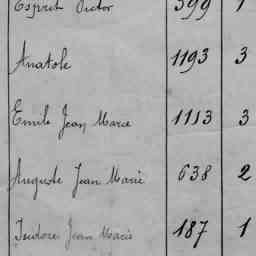 Esprit Victor 399 1
Anatole 1193 3
Emile Jean Marie 1113 3
Auguste Jean Marie 638 2
Isidore Jean Marie 187 1